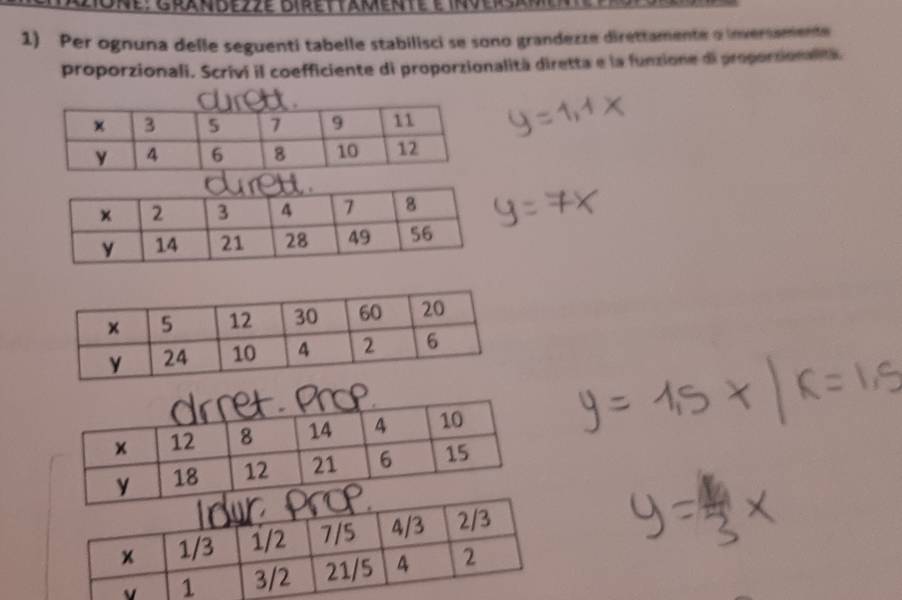 GRANDEZZE DIRETTAMENTE E INVERSAMENTE
1) Per ognuna delle seguenti tabelle stabilisci se sono grandezze direttamente o inversamente
proporzionali. Scrivi il coefficiente di proporzionalità diretta e la funzione di proporzionalità.
dirett.
x 3 5 7 9 11
y 4 6 8 10 12
y=1,1x
dirett.
x 2 3 4 7 8
y 14 21 28 49 56
y=7x
x 5 12 30 60 20
y 24 10 4 2 6
dirret. Prop.
x 12 8 14 4 10
y 18 12 21 6 15
y = 1,5 x | K = 1,5
prop.
x 1/3 1/2 7/5 4/3 2/3
y 1 3/2 21/5 4 2
y = 3 x